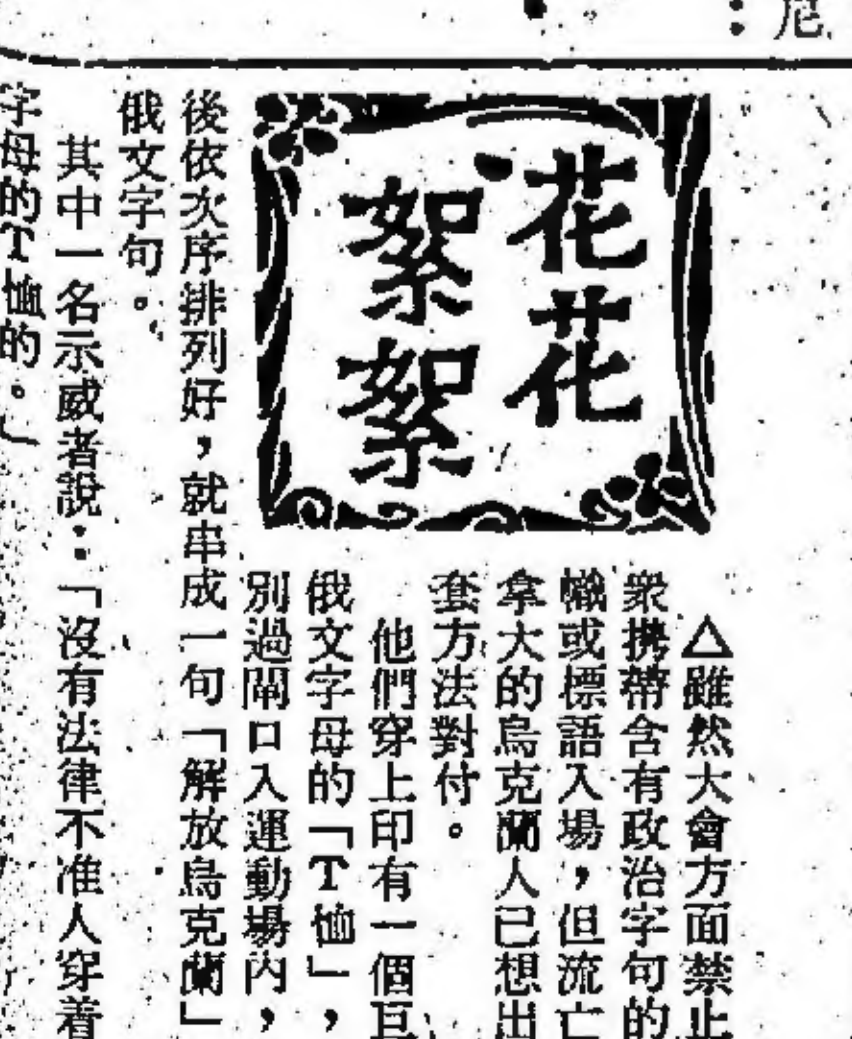 尼
花花
絮絮
△雖然大會方面禁止
衆携帶含有政治字句的
幟或標語入場，但流亡
拿大的烏克蘭人已想出
套方法對付。
他們穿上印有一個巨
俄文字母的「T恤」，
別過閘口入運動場內，
後依次序排列好，就串成一句「解放烏克蘭」
俄文字句。
其中一名示威者說：「沒有法律不准人穿着
字母的T恤的。」